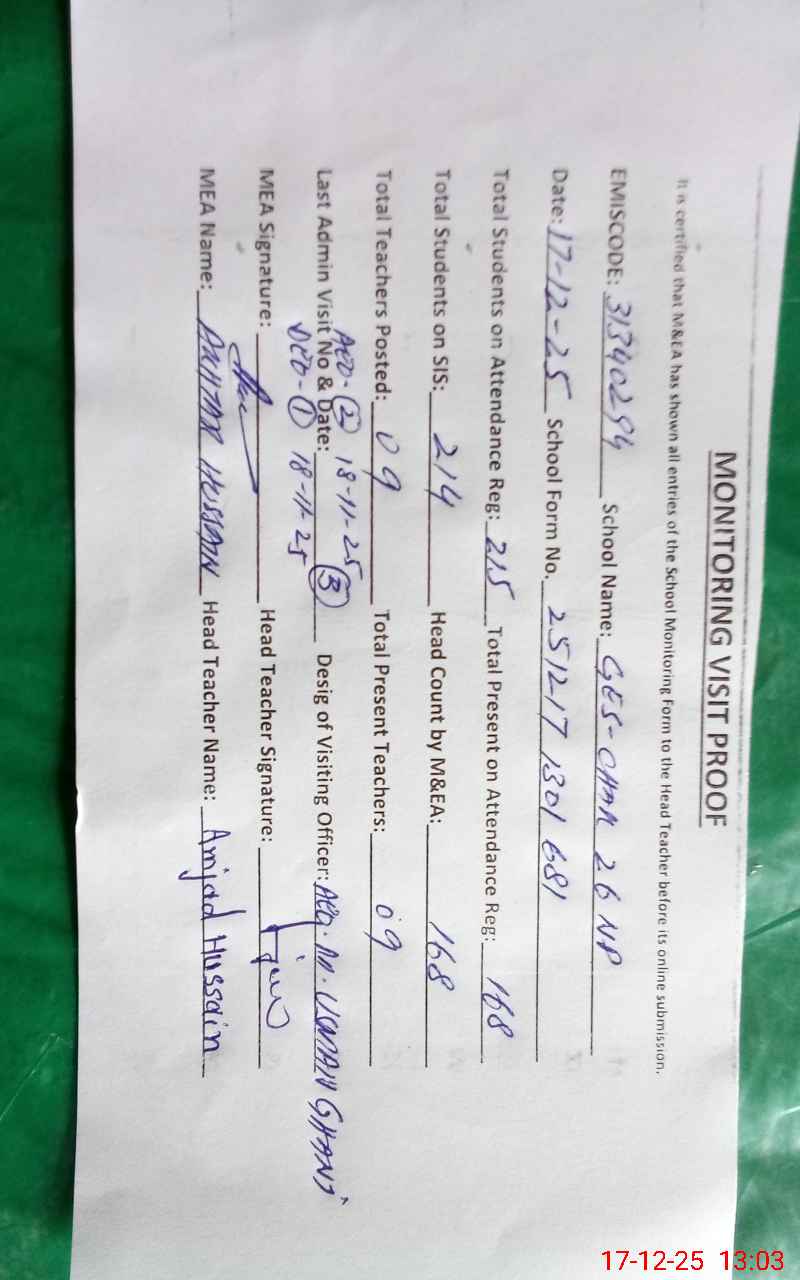 MONITORING VISIT PROOF
It is certified that M&EA has shown all entries of the School Monitoring Form to the Head Teacher before its online submission.
EMISCODE: 31340294 School Name: GES-CHAK 26 NP
Date: 17-12-25 School Form No. 251217 1301 681
Total Students on Attendance Reg: 215 Total Present on Attendance Reg: 168
Total Students on SIS: 214 Head Count by M&EA: 168
Total Teachers Posted: 09 Total Present Teachers: 09
AEO-(2) 18-11-25
Last Admin Visit No & Date: (3) Desig of Visiting Officer: AEO. M. USMAN GHANI
DEO-(1) 18-11-25
MEA Signature: Head Teacher Signature:
MEA Name: AKHTAR HUSSAIN Head Teacher Name: Amjad Hussain
17-12-25 13:03